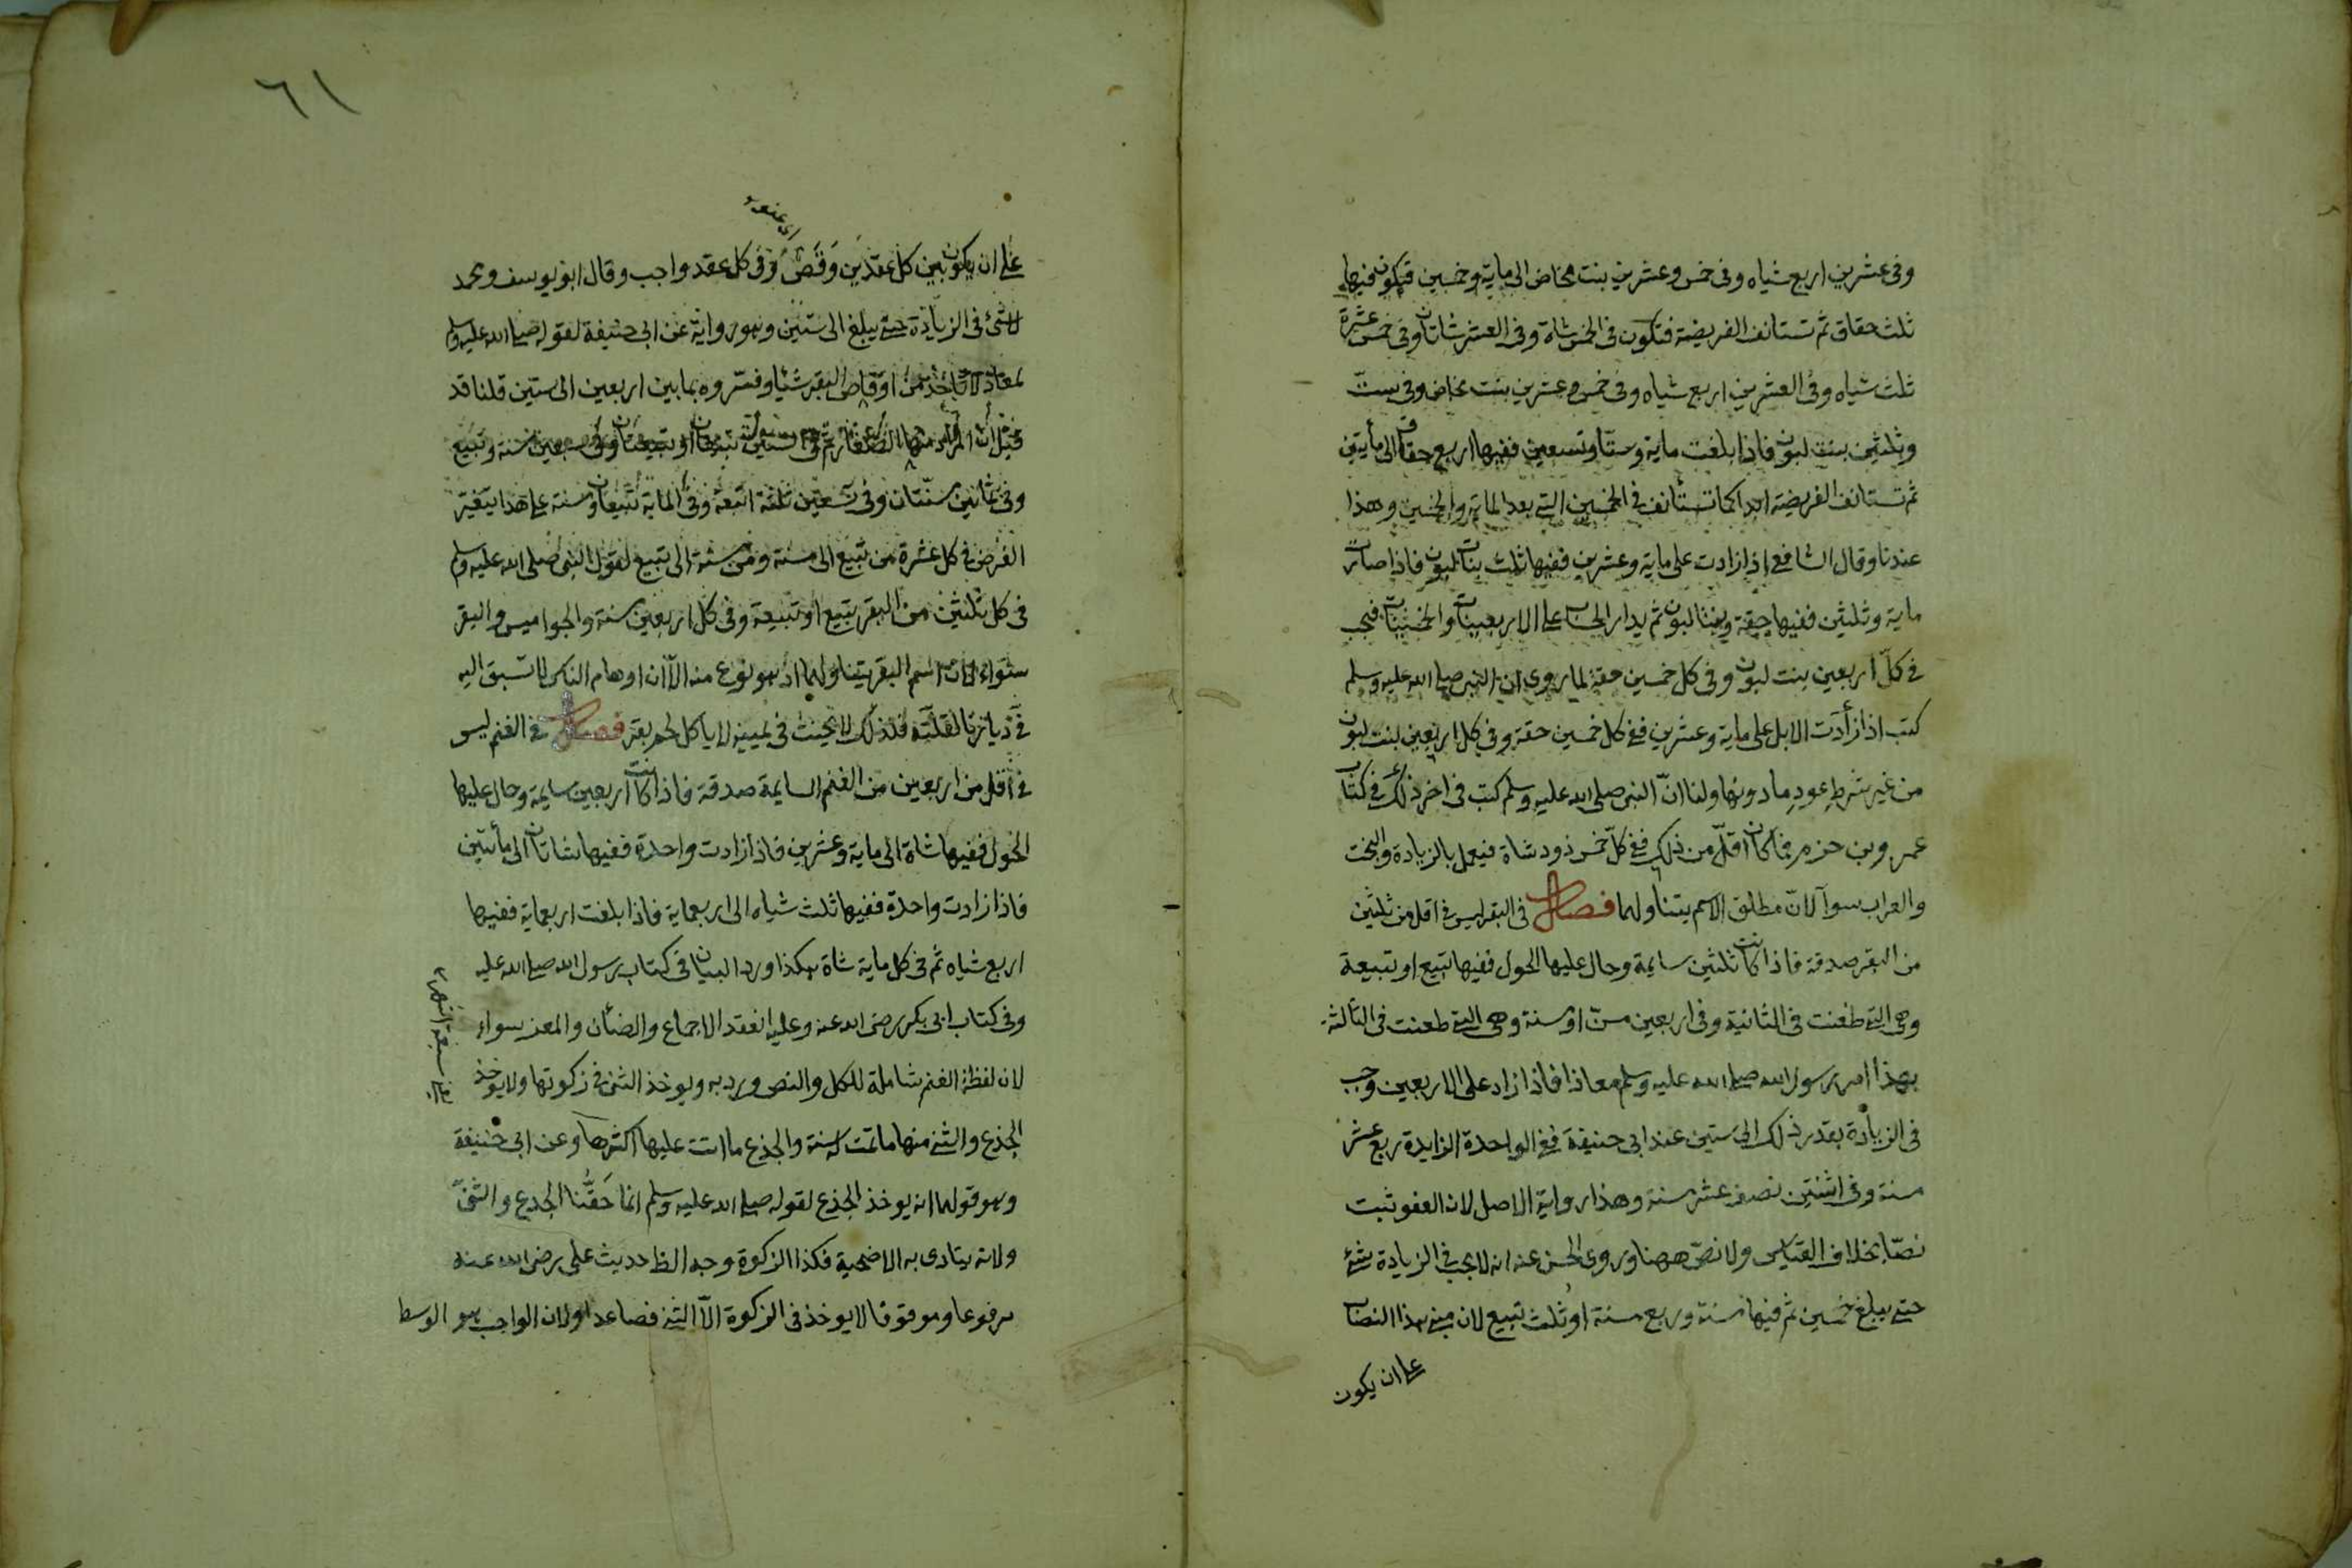 وفى عشرين اربع شياه وفى خمس وعشرين بنت مخاض الى ماية وخمسين فتكون فيها
ثلث حقاق ثم تستانف الفريضة فتكون فى الخمس شاة وفى العشر شاتان وفى خمس عشرة
ثلث شياه وفى العشرين اربع شياه وفى خمس وعشرين بنت مخاض وفى ست
وثلثين بنت لبون فاذا بلغت ماية وستا وتسعين ففيها اربع حقاق الى مأيتين
ثم تستانف الفريضة ابدا كما تستأنف فى الخمسين التى بعد الماية والخمسين وهذا
عندنا وقال الشافعى اذا زادت على ماية وعشرين ففيها ثلث بنات لبون فاذا صارت
ماية وثلثين ففيها حقة وبنتا لبون ثم يدار الحساب على الاربعينات والخمسينات فيجب
فى كلّ اربعين بنت لبون وفى كل خمسين حقة لما روى ان النبى صلى الله عليه وسلم
كتب اذا زادت الابل على ماية وعشرين ففى كل خمسين حقة وفى كل اربعين بنت لبون
من غير شرط عود ما دونها ولنا انّ النبى صلى الله عليه وسلم كتب فى اخر ذلك فى كتاب
عمرو بن حزم فما كان اقلّ من ذلك ففى كلّ خمس ذود شاة فيعمل بالزيادة والبخت
والعراب سوآ لانّ مطلق الاسم يتناولهما فصل فى البقر ليس فى اقل من ثلثين
من البقر صدقة فاذا كانت ثلثين سايمة وحال عليها الحول ففيها تبيع او تبيعة
وهى التى طعنت فى الثانية وفى اربعين مسنّ او مسنة وهى التى طعنت فى الثالثة
بهذا امر رسول الله صلى الله عليه وسلم معاذا فاذا زاد على الاربعين وجب
فى الزيادة بقدر ذلك الى ستين عند ابى حنيفة ففى الواحدة الزايدة ربع عشر
مسنة وفى اثنتين نصف عشر مسنة وهذا رواية الاصل لان العفو ثبت
نصّا بخلاف القياس ولا نصّ ههنا وروى الحسن عنه انه لا يجب فى الزيادة شئ
حتى يبلغ خمسين ثم فيها مسنة وربع مسنة او ثلث تبيع لان مبنى هذا النصاب
على ان يكون
٦١
على ان يكون بين كل عقدين وَقَصٌ وفى كل عقد واجب وقال ابو يوسف ومحمد
لا شئ فى الزيادة حتى يبلغ الى ستين وهو رواية عن ابى حنيفة لقوله صلى الله عليه وسلم
لمعاذ لا تأخذ من اوقاص البقر شئيا وفسروه بما بين اربعين الى ستين قلنا قد
قيل ان المراد منها الصغار ثم فى ستين تبيعان او تبيعتان وفى سبعين مسنة وتبيع
وفى ثمانين مسنّتان وفى تسعين ثلثة اتبعة وفى الماية تبيعان ومسنة على هذا يتغير
الفرض فى كل عشرة من تبيع الى مسنة ومن مسنة الى تبيع لقول النبى صلى الله عليه وسلم
فى كل ثلثين من البقر تبيع او تبيعة وفى كل اربعين مسنة والجواميس والبقر
سواء لان اسم البقر يتناولهما اذ هو نوع منه الاّ ان اوهام الناس لا تسبق اليه
فى ديارنا لقلّته فلذلك لا يحنث فى يمينه لا ياكل لحم بقر فصل فى الغنم ليس
فى اقل من اربعين من الغنم السايمة صدقة فاذا كانت اربعين سايمة وحال عليها
الحول ففيها شاة الى ماية وعشرين فاذا زادت واحدة ففيها شاتان الى مأتين
فاذا زادت واحدة ففيها ثلث شياه الى اربعماية فاذا بلغت اربعماية ففيها
اربع شياه ثم فى كل ماية شاة هكذا ورد البيان فى كتاب رسول الله صلى الله عليه
وفى كتاب ابى بكر رضى الله عنه وعليه انعقد الاجماع والضأن والمعز سواء
لان لفظة الغنم شاملة للكل والنص ورد به ويوخذ الثنى فى زكوتها ولا يوخذ
الجذع والثنى منها ما تمت له سنة والجذع ما اتت عليها اكثرها وعن ابى حنيفة
وهو قولهما انه يوخذ الجذع لقوله صلى الله عليه وسلم انما حَقُّنا الجذع والثنىّ
ولانه يتادى به الاضحية فكذا الزكوة وجه الظ حديث على رضى الله عنه
مرفوعا وموقوفا لا يوخذ فى الزكوة الاّ الثنى فصاعدا ولان الواجب هو الوسط